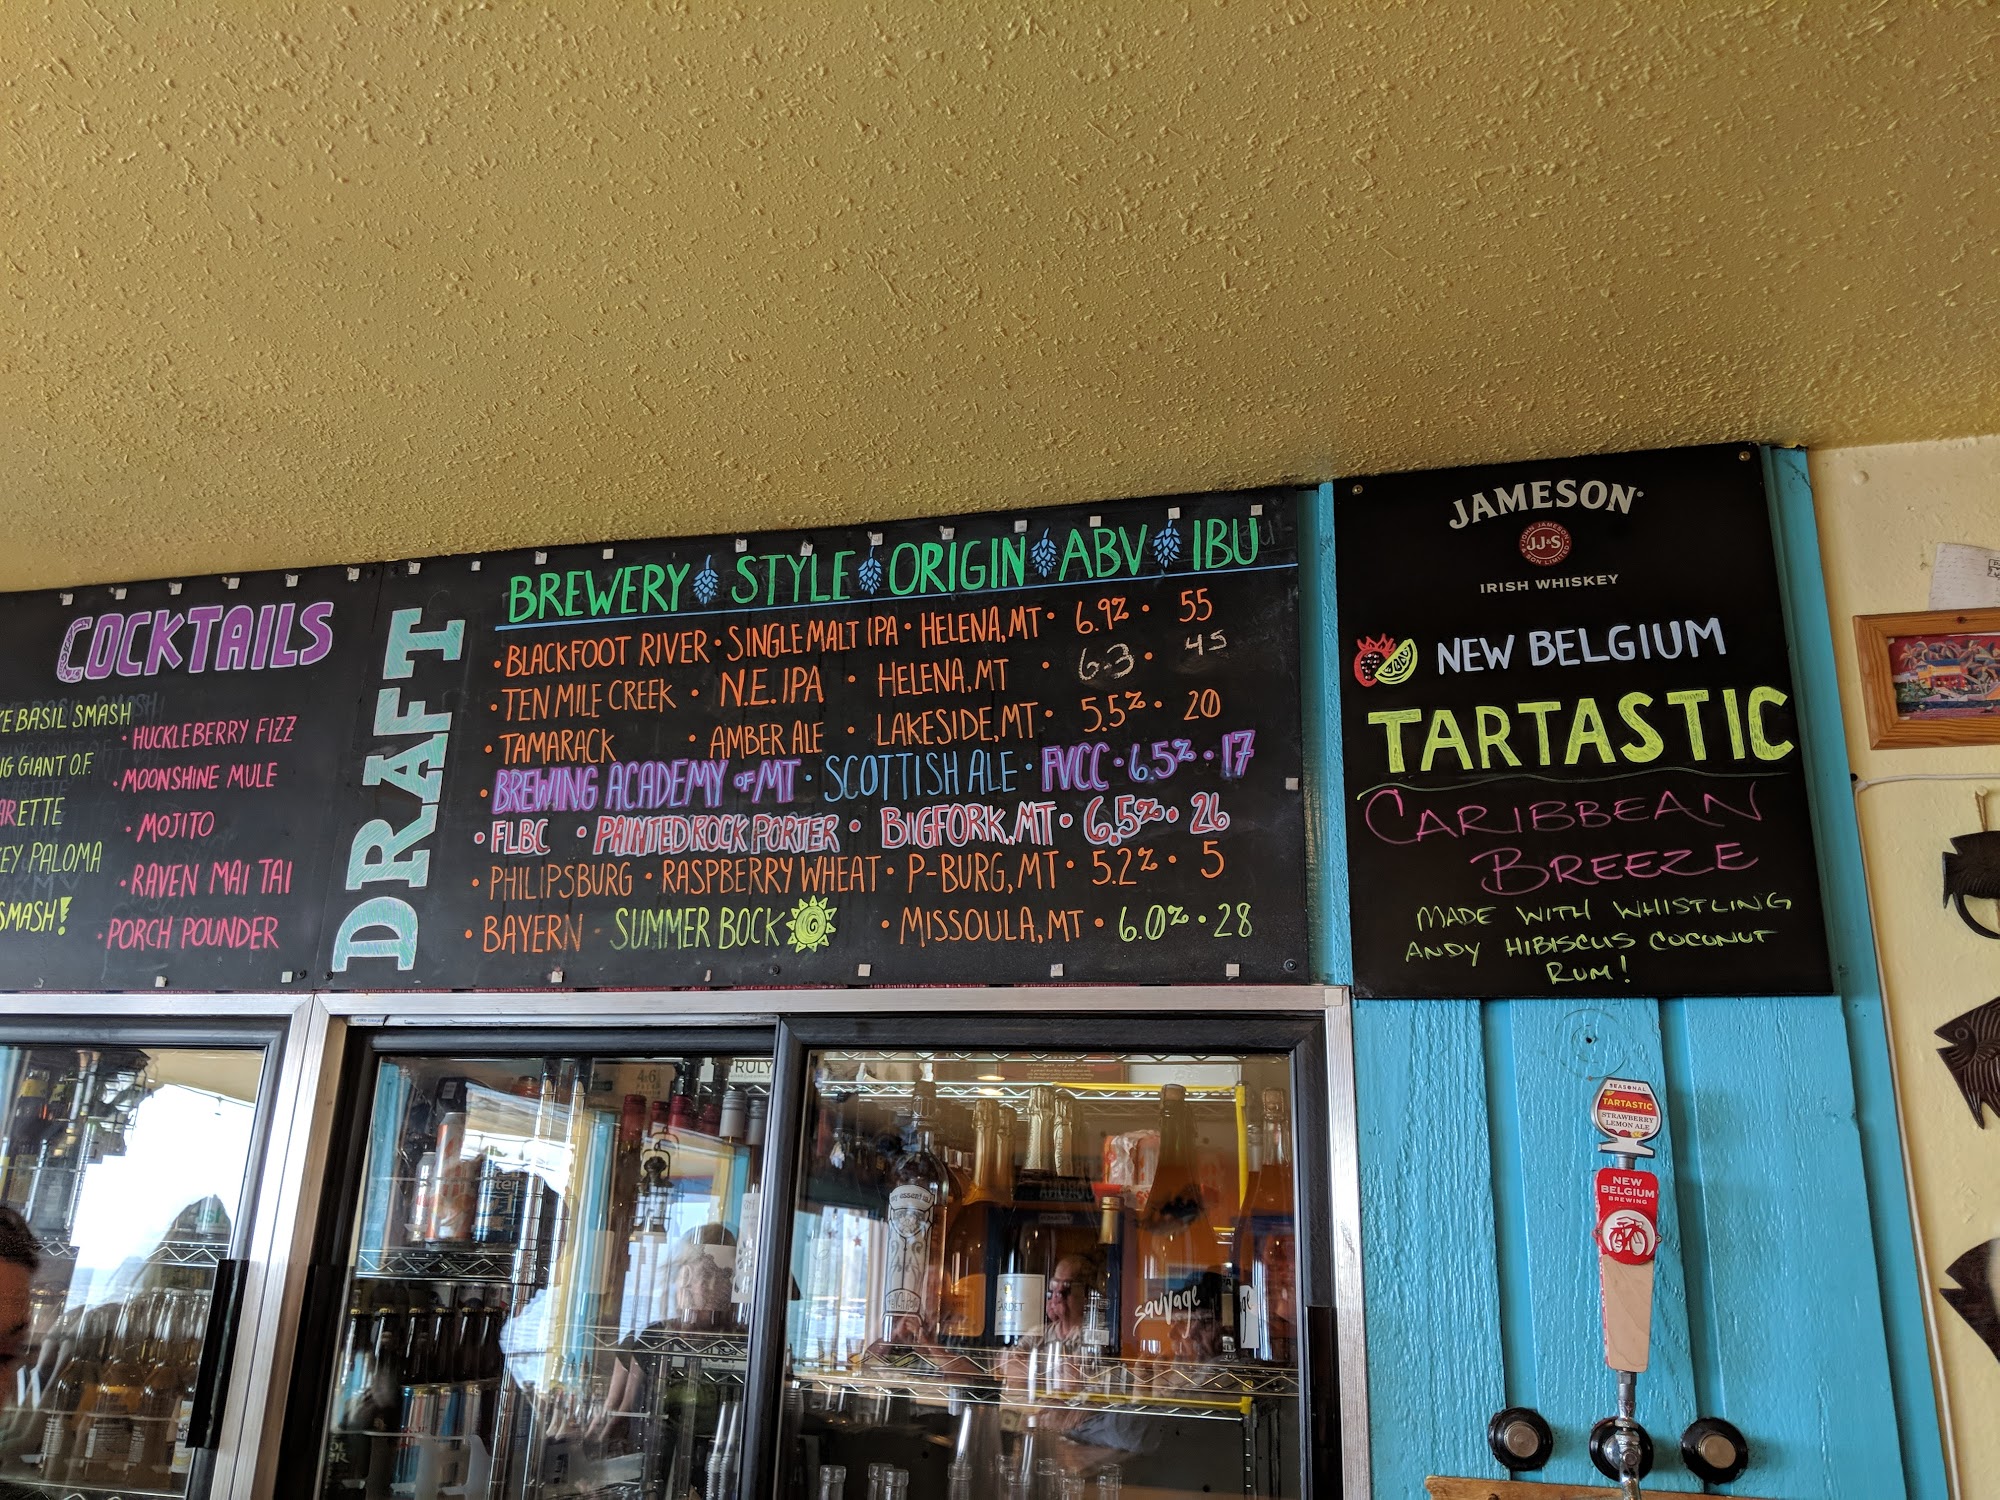 COCKTAILS
KE BASIL SMASH
NG GIANT O.F.
ARETTE
EY PALOMA
SMASH!
• HUCKLEBERRY FIZZ
• MOONSHINE MULE
• MOJITO
• RAVEN MAI TAI
• PORCH POUNDER
DRAFT
BREWERY STYLE ORIGIN ABV IBU
• BLACKFOOT RIVER • SINGLE MALT IPA • HELENA, MT • 6.9% • 55
• TEN MILE CREEK • N.E. IPA • HELENA, MT • 6.3 • 45
• TAMARACK • AMBER ALE • LAKESIDE, MT • 5.5% • 20
• BREWING ACADEMY OF MT • SCOTTISH ALE • FVCC • 6.5% • 17
• FLBC • PAINTED ROCK PORTER • BIGFORK, MT • 6.5% • 26
• PHILIPSBURG • RASPBERRY WHEAT • P-BURG, MT • 5.2% • 5
• BAYERN - SUMMER BOCK • MISSOULA, MT • 6.0% • 28
JAMESON
JOHN JAMESON
JJ&S
IRISH WHISKEY
NEW BELGIUM
TARTASTIC
CARIBBEAN
BREEZE
MADE WITH WHISTLING
ANDY HIBISCUS COCONUT
RUM!
SEASONAL
TARTASTIC
STRAWBERRY
LEMON ALE
NEW
BELGIUM
BREWING
RULY
sauvage